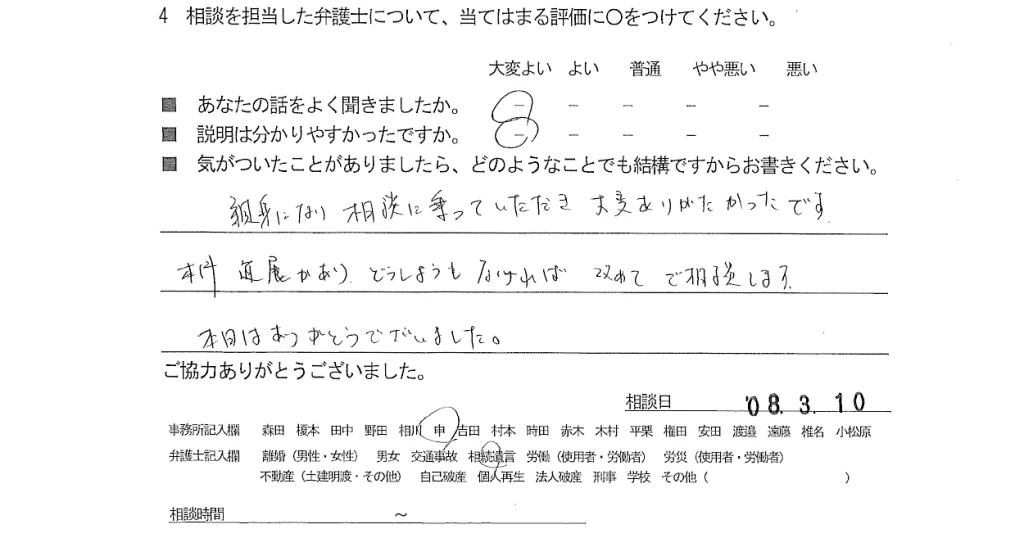 4 相談を担当した弁護士について、当てはまる評価に○をつけてください。
大変よい よい 普通 やや悪い 悪い
■ あなたの話をよく聞きましたか。 － － － － －
■ 説明は分かりやすかったですか。 － － － － －
■ 気がついたことがありましたら、どのようなことでも結構ですからお書きください。
親身になり 相談に乗っていただき 大変ありがたかったです
本件 進展があり どうしようもなければ 改めて ご相談します
本日はありがとうございました。
ご協力ありがとうございました。
相談日 '08. 3. 10
事務所記入欄 森田 榎本 田中 野田 相川 申 吉田 村本 時田 赤木 木村 平栗 権田 安田 渡邉 遠藤 椎名 小松原
弁護士記入欄 離婚（男性・女性） 男女 交通事故 相続遺言 労働（使用者・労働者） 労災（使用者・労働者）
不動産（土建明渡・その他） 自己破産 個人再生 法人破産 刑事 学校 その他（ ）
相談時間 ～